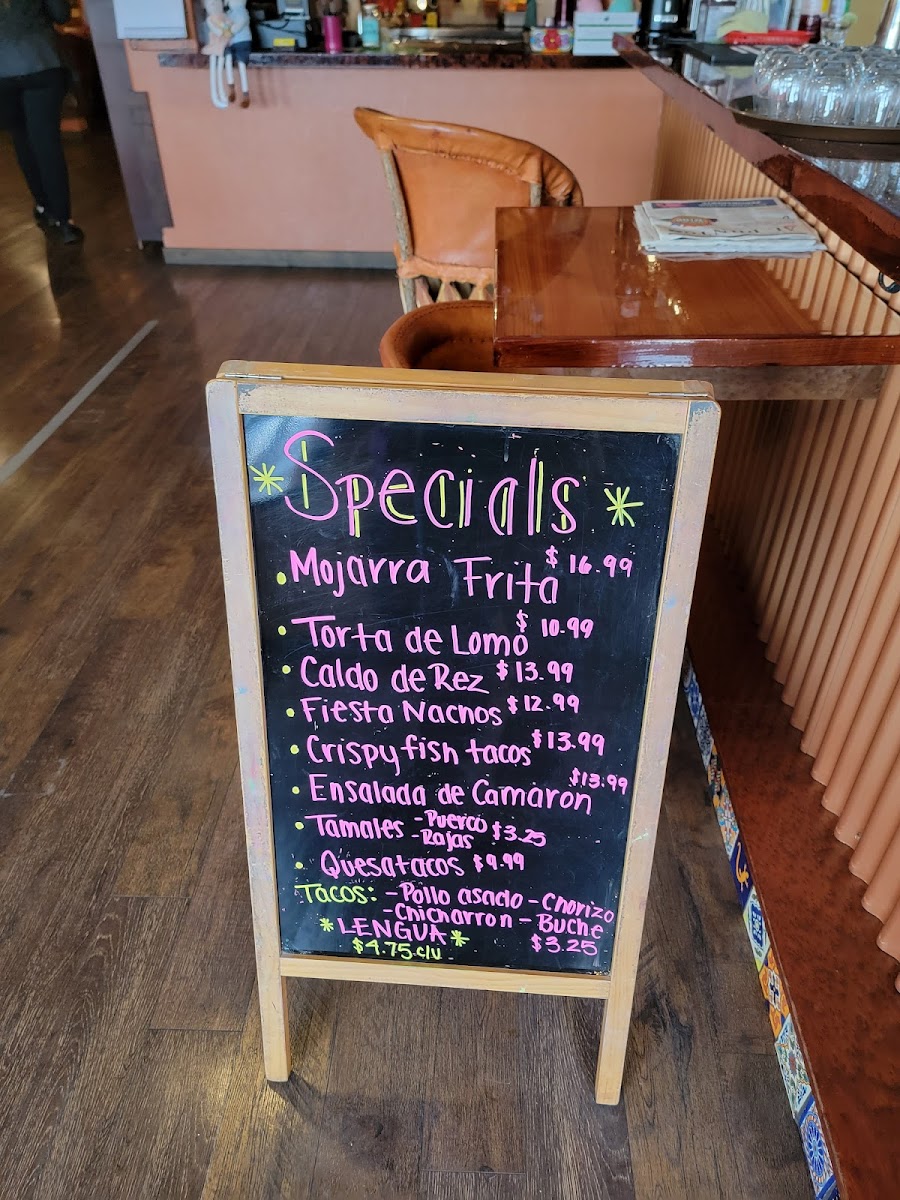 *Specials*
• Mojarra Frita $16.99
• Torta de Lomo $10.99
• Caldo de Rez $13.99
• Fiesta Nachos $12.99
• Crispy fish tacos $13.99
• Ensalada de Camaron $13.99
• Tamales -Puerco $3.25
-Rajas
• Quesatacos $9.99
Tacos: -Pollo asado -Chorizo
-Chicharron -Buche
*LENGUA* $3.25
$4.75 c/u